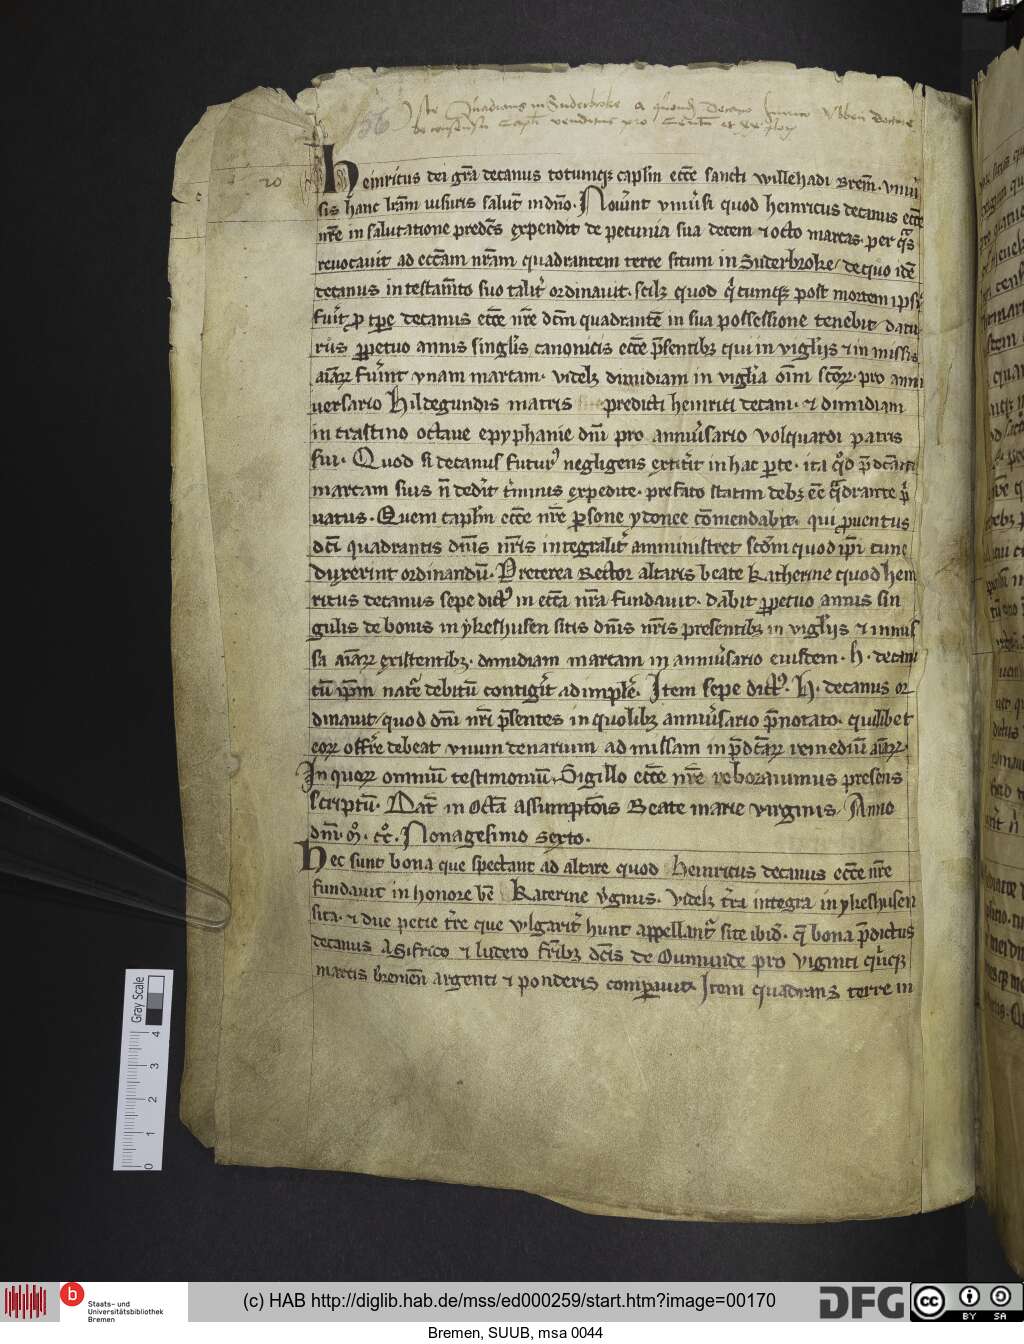 Iste Quadrans in Suderbroke a quond decano Hinrico Ubben Doctore
de consensu Capli venditus pro
156
20
Heinricus dei gra decanus totumq; capłm ecce sancti willehadi Brem. vniu
sis hanc lram uisuris salut in dno. Nouint vniusi quod heinricus decanus ecce
nre in salutatione predcs expendit de pecunia sua decem ⁊ octo marcas. per qs
reuocauit ad eccam nram quadrantem terre situm in Suderbroke/ de quo ide
decanus in testamto suo talit ordinauit. scilz quod q cumq; post mortem ipsi
fuit p tpe decanus ecce nre dcm quadrante in sua possessione tenebit/ datu
rus ppetuo annis singlis canonicis ecce psentibz qui in vigliis ⁊ in missis
aiar fuint vnam marcam. videlz dimidiam in viglia oim scor. pro anni
uersario Hildegundis matris predicti heinrici decani. ⁊ dimidiam
in crastino octaue epyphanie dni pro anniusario volquardi patris
sui. Quod si decanus futur negligens extitit in hac parte. ita qd pdcam
marcam suis n dedit tminis expedite. prefato statim debz ee qdrante pi
uatus. Quem caplm ecce nre psone ydonee comendabit. qui puentus
dci quadrantis dnis nris integralit amministret scdm quod ipi tunc
duxerint ordinandu. Preterea Rector altaris beate Katherine quod hein
ricus decanus sepe dict in ecca nra fundauit. dabit ppetuo annis sin
gulis de bonis in ykeshusen sitis dnis nris presentibz in vigliis ⁊ in mis
sa aiar existentibz. dimidiam marcam in anniusario eiusdem. h. decani
cu ipm nature debitu contigit ad implere. Item sepe dict. H. decanus or
dinauit/ quod dni nri psentes in quolibz anniusario pnotato. quilibet
eor offre debeat vnum denarium ad missam in pdcar remediu aiar.
In quor omniu testimoniu. Sigillo ecce nre roborauimus presens
scriptu. Dat in Octa assumptois Beate marie virginis/ Anno
dni. m. cc. Nonagesimo sexto.
Hec sunt bona que spectant ad altare quod Heinricus decanus ecce nre
fundauit in honore be Katerine vgnis. Videlz tra integra in ykeshusen
sita. ⁊ due pecie tre que vulgarit hunt appellant site ibid. q bona pdictus
decanus a Sifrico ⁊ ludero fribz dcis de Oumunde pro viginti quiq;
marcis bremen argenti ⁊ ponderis comparauit. Item quadrans terre in
Gray Scale
0 1 2 3 4
b Staats- und
Universitätsbibliothek
Bremen
(c) HAB http://diglib.hab.de/mss/ed000259/start.htm?image=00170
DFG
cc BY SA
Bremen, SUUB, msa 0044